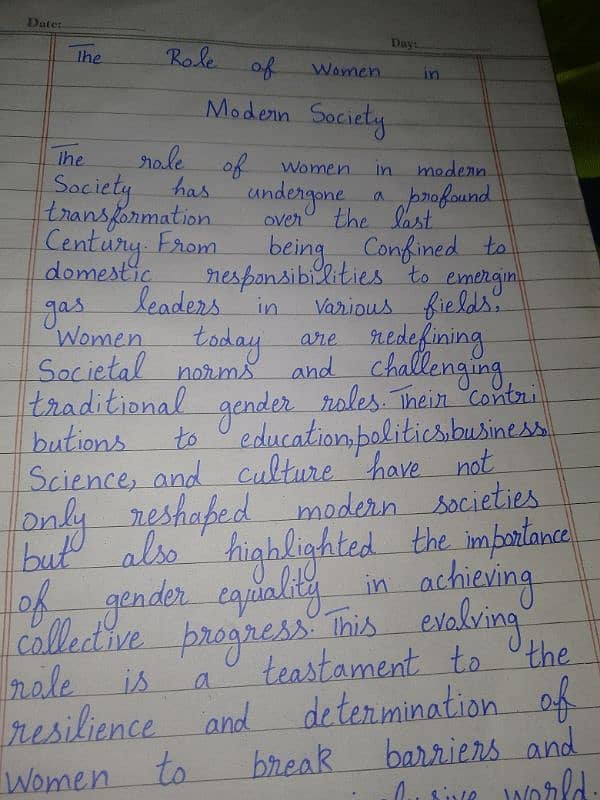 Date:
Day:
The Role of Women in
Modern Society
The role of women in modern
Society has undergone a profound
transformation over the last
Century. From being Confined to
domestic responsibilities to emergin
gas leaders in various fields,
Women today are redefining
Societal norms and challenging
traditional gender roles. Their Contri
butions to education,politics,business,
Science, and culture have not
only reshaped modern societies
but also highlighted the importance
of gender equality in achieving
collective progress. This evolving
role is a teastament to the
resilience and determination of
Women to break barriers and
world.